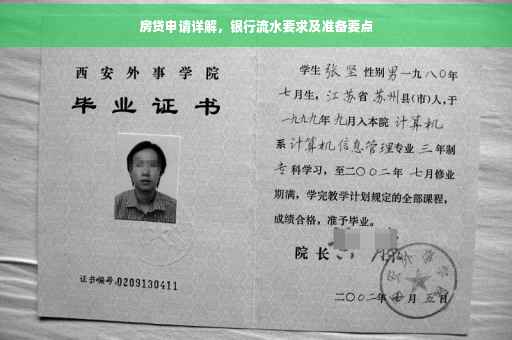 房贷申请详解，银行流水要求及准备要点
西安外事学院
毕业证书
证书编号:0209130411
学生 张坚 性别 男 一九八〇年
七月生，江苏省 苏州 县(市)人，于
一九九九年 九月入本院 计算机
系 计算机信息管理 专业 三 年制
专 科学习，至二〇〇二年 七月修业
期满，学完教学计划规定的全部课程，
成绩合格，准予毕业。
院长
二〇〇二年 月 五日